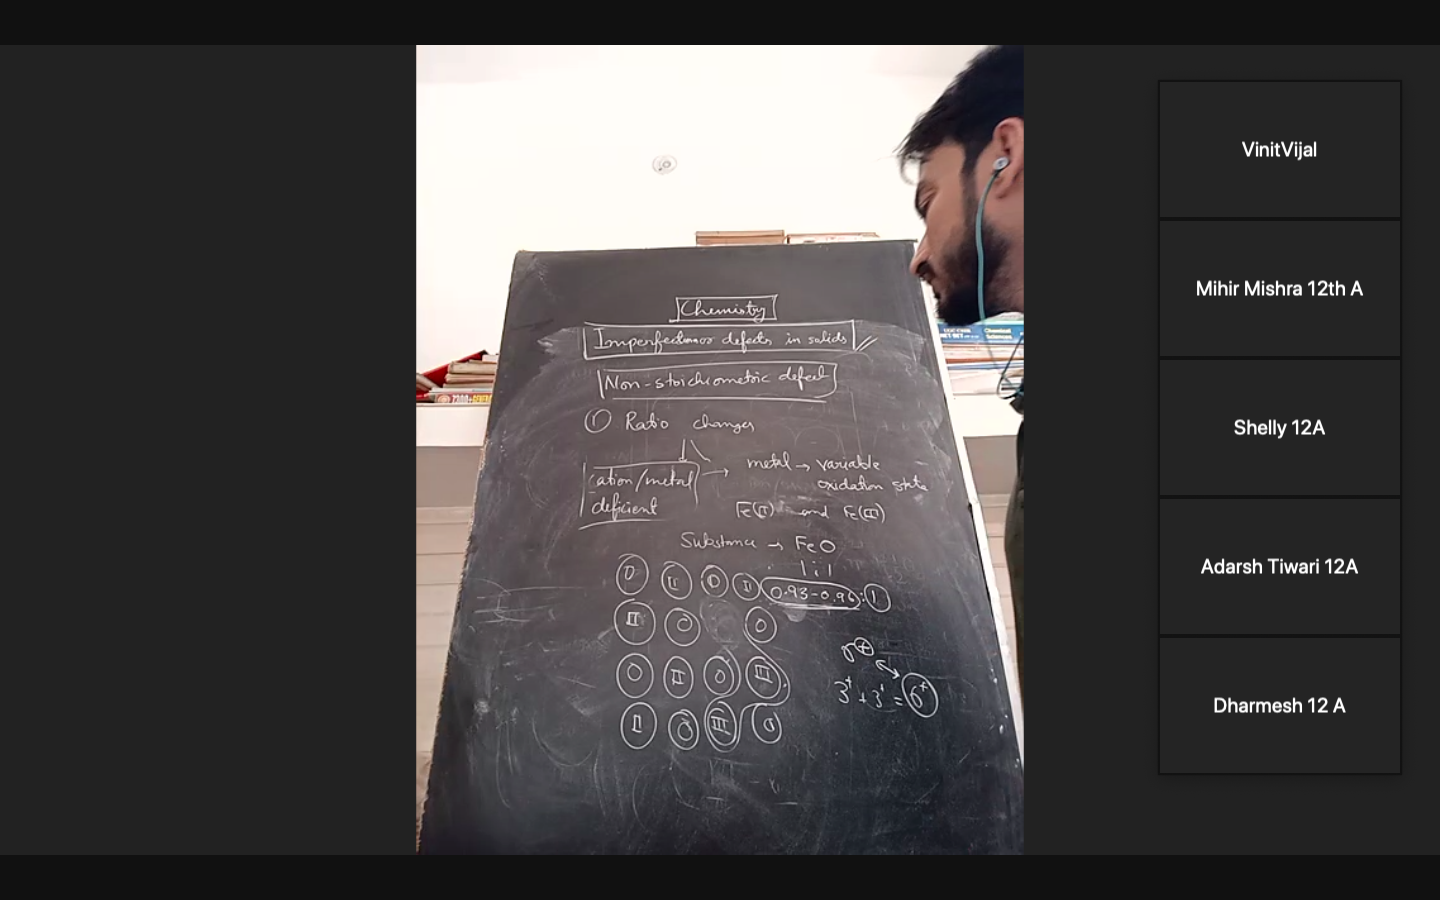 Chemistry
Imperfection or defects in solids
Non-stoichiometric defect
① Ratio changes
cation/metal → metal → variable
deficient oxidation state
Fe(II) and Fe(III)
Substance → FeO
1:1
O II O II 0.93-0.96:1
II O O
O II O III
3+ + 3+ = 6+
II O III O
Chemical
Sciences
VinitVijal
Mihir Mishra 12th A
Shelly 12A
Adarsh Tiwari 12A
Dharmesh 12 A